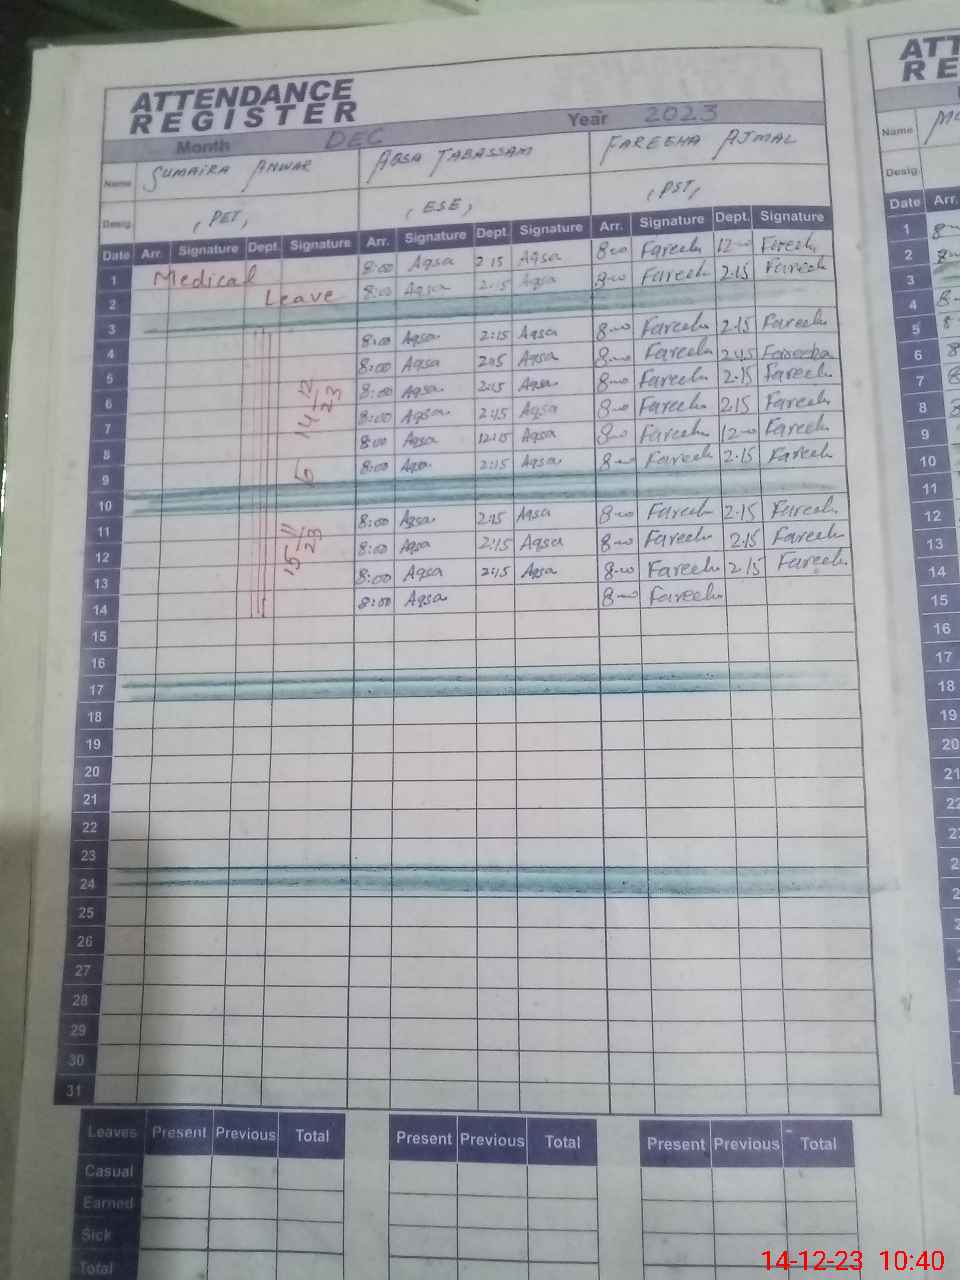 ATTENDANCE
REGISTER
Month DEC Year 2023
Name SUMAIRA ANWAR AQSA TABASSAM FAREEHA AJMAL
Desig. , PET, , ESE, , PST,
Date Arr. Signature Dept. Signature Arr. Signature Dept. Signature Arr. Signature Dept. Signature
1 Medical 8:00 Aqsa 2:15 Aqsa 8-00 Fareeh 12-00 Fareeh
2 Leave 8:00 Aqsa 2:15 Aqsa 8-00 Fareeh 2.15 Fareeh
3
4 8:00 Aqsa 2:15 Aqsa 8-00 Fareeh 2.15 Fareeh
5 8:00 Aqsa Aqsa 8-00 Fareeh Fareeha
6 8:00 Aqsa 2:15 Aqsa 8-00 Fareeh 2.15 Fareeh
7 8:00 Aqsa 2:15 Aqsa 8-00 Fareeh 2.15 Fareeh
8 8:00 Aqsa 12:15 Aqsa 8-00 Fareeh 12-00 Fareeh
9 8:00 Aqsa 2:15 Aqsa 8-00 Fareeh 2.15 Fareeh
10
11 8:00 Aqsa 2:15 Aqsa 8-00 Fareeh 2.15 Fareeh
12 8:00 Aqsa 2:15 Aqsa 8-00 Fareeh 2.15 Fareeh
13 8:00 Aqsa 2:15 Aqsa 8-00 Fareeh 2.15 Fareeh
14 8:00 Aqsa 8-00 Fareeh
15 11/23 to 14 12/23
15
16
17
18
19
20
21
22
23
24
25
26
27
28
29
30
31
Leaves Present Previous Total Present Previous Total Present Previous Total
Casual
Earned
Sick
Total
ATT
RE
Name
Desig.
Date Arr.
1
2
3
4
5
6
7
8
9
10
11
12
13
14
15
16
17
18
19
20
21
14-12-23 10:40